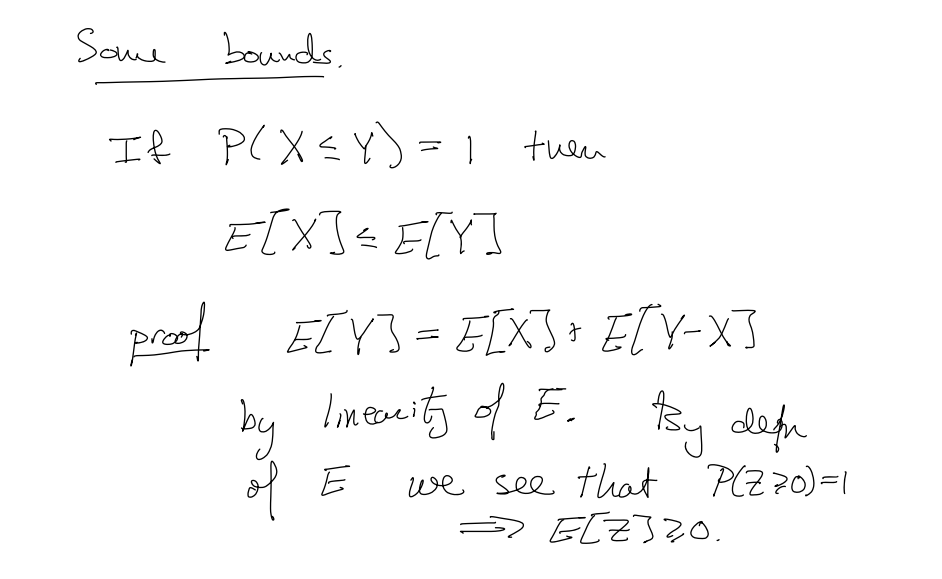 Some bounds.
If P(X ≤ Y) = 1 then
E[X] ≤ E[Y]
proof E[Y] = E[X] + E[Y-X]
by linearity of E. By defn
of E we see that P(Z ≥ 0) = 1
⟹ E[Z] ≥ 0.